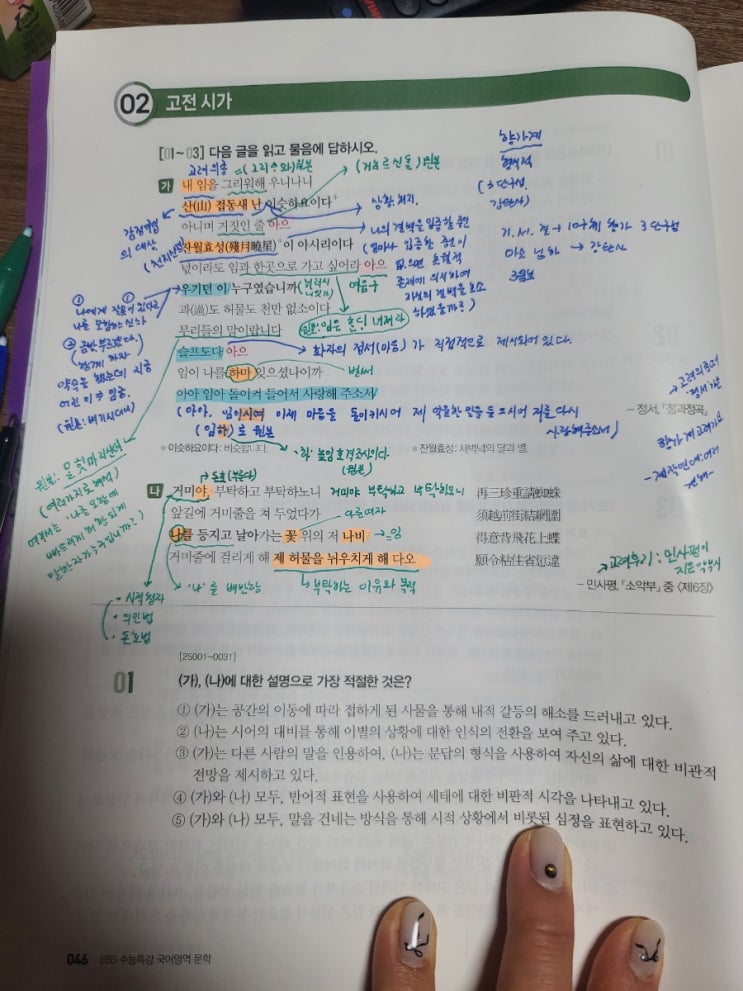 02 고전 시가
[01~03] 다음 글을 읽고 물음에 답하시오.
가 내 임을 그리워해 우니나니
산(山) 접동새 난 이슷하요이다
아니며 거짓인 줄 아으
잔월효성(殘月曉星)이 아시리이다
넋이라도 임과 한곳으로 가고 싶어라 아으
우기던 이 누구였습니까
과(過)도 허물도 천만 없소이다
무리들의 말이랍니다
슬프도다 아으
임이 나를 하마 잊으셨나이까
아아 임아 돌이켜 들어서 사랑해 주소서
- 정서, 「정과정곡」
*이슷하요이다: 비슷합니다.
*잔월효성: 새벽녘의 달과 별.
나 거미야, 부탁하고 부탁하노니 再三珍重請蜘蛛
앞길에 거미줄을 쳐 두었다가 須越前街結網圍
나를 등지고 날아가는 꽃 위의 저 나비 得意背飛花上蝶
거미줄에 걸리게 해 제 허물을 뉘우치게 해 다오 願令粘住省愆違
- 민사평, 「소악부」 중 〈제6장〉
고려의 충
(그리속와)원본
상황 처지.
향가계
형식적
(3단구성.
감탄사)
기. 서. 결 → 10구체 향가 3단구성
→ 감탄사
3음보
감정이입
의 대상.
여음구
화자의 정서(마음)가 직접적으로 제시되어 있다.
(아아, 임이시여 이제 마음을 돌이키시어 제 억울한 말을 들으시어 저를 다시
사랑해주소서)
(임하)로 원본
'하' 높임 호격조사이다.
(원본)
→ 돈호(부른다)
거미야 부탁하고 부탁하오니
다른여자
→임
'나'를 배반한
부탁하는 이유와 목적
• 시적청자
• 의인법
• 돈호법
고려후기 : 민사평이
지은악부시
[25001-0031]
01 (가), (나)에 대한 설명으로 가장 적절한 것은?
① (가)는 공간의 이동에 따라 접하게 된 사물을 통해 내적 갈등의 해소를 드러내고 있다.
② (나)는 시어의 대비를 통해 이별의 상황에 대한 인식의 전환을 보여 주고 있다.
③ (가)는 다른 사람의 말을 인용하여, (나)는 문답의 형식을 사용하여 자신의 삶에 대한 비관적
전망을 제시하고 있다.
④ (가)와 (나) 모두, 반어적 표현을 사용하여 세태에 대한 비판적 시각을 나타내고 있다.
⑤ (가)와 (나) 모두, 말을 건네는 방식을 통해 시적 상황에서 비롯된 심정을 표현하고 있다.
046 EBS 수능특강 국어영역 문학